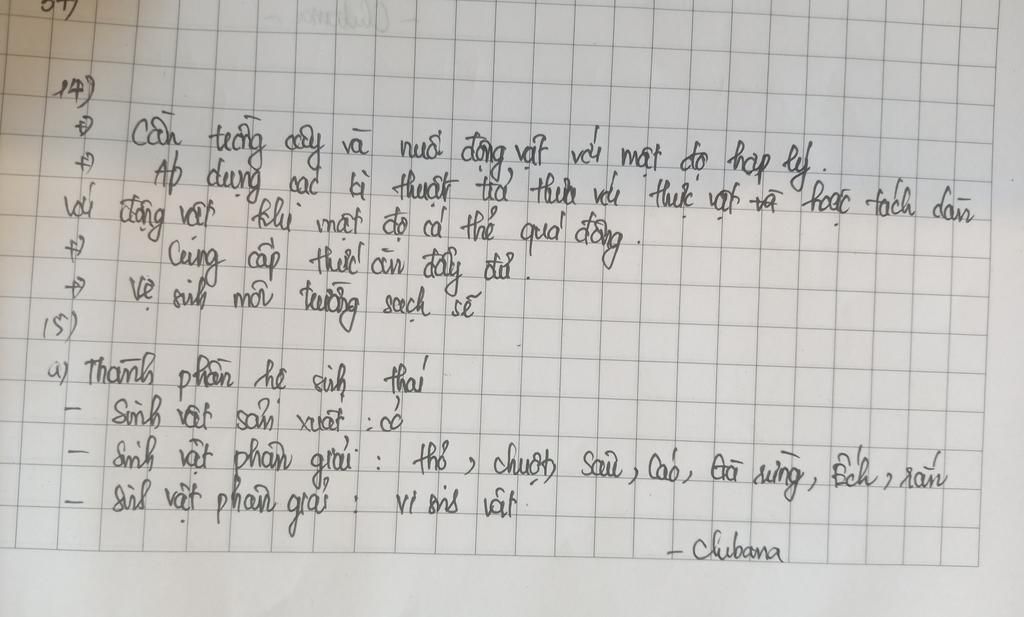 14)
+) Cần trồng cây và nuôi động vật với mật độ hợp lý.
+) Áp dụng các kĩ thuật tỉa thưa với thực vật và hoặc tách đàn
với động vật khi mật độ cá thể quá đông.
+) Cung cấp thức ăn đầy đủ.
+) Vệ sinh môi trường sạch sẽ
15)
a) Thành phần hệ sinh thái
- Sinh vật sản xuất : cỏ
- Sinh vật phân giải : thỏ, chuột, sâu, cáo, gà rừng, Ếch, rắn
- Sinh vật phân giải : vi sinh vật.
- Clubana